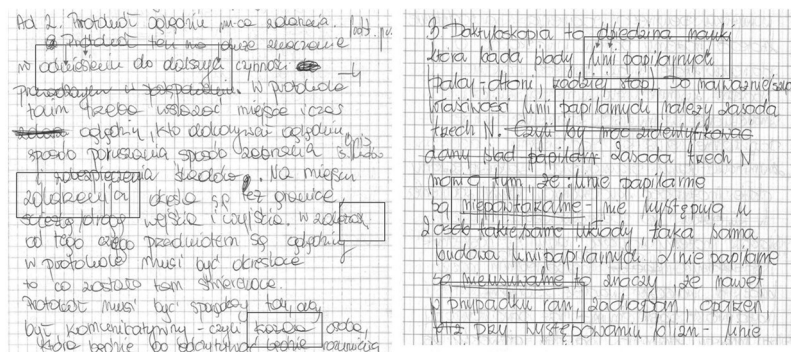 Ad 2. Protokół oględzin miejsca zdarzenia.
Protokół ten ma duże znaczenie
w odniesieniu do dalszych czynności
w protokole
takim trzeba wskazać miejsce i czas
oględzin, kto dokonywał oględzin,
sposób poruszania sposób
zabezpieczenia śladów. Na miejscu
zdarzenia określa się też granice,
drogę wejścia i wyjścia. w zależności
od tego czego przedmiotem są oględziny
w protokole musi być określone
to co zostało tam stwierdzone.
Protokół musi być
być komunikatywny - czyli każda osoba,
która będzie go odczytywać będzie
3 Daktyloskopia to dziedzina nauki
która bada ślady linii papilarnych
palcy, dłoni, rzadziej stop. Do najważniejszych
właściwości linii papilarnych należy zasada
trzech N. Czyli by móc zidentyfikować
dany ślad papilarn Zasada trzech N
mówi o tym, że: linie papilarne
są niepowtarzalne - nie występują u
2 osób takie same układy, taka sama
budowa linii papilarnych. Linie papilarne
są nieusuwalne to znaczy, że nawet
w przypadku ran, zadrapań, oparzeń,
też przy występowaniu blizn - linie